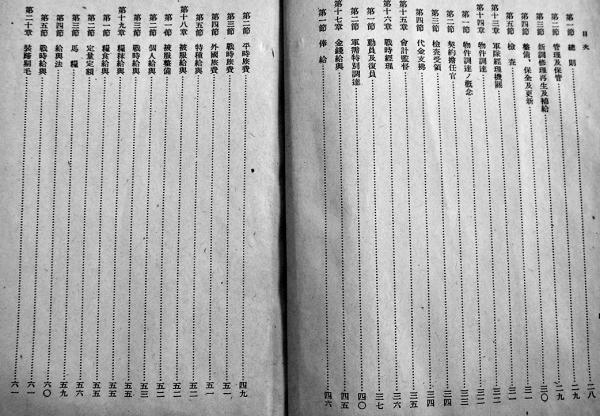 目次
第一節 總則 二八
第二節 管理及保管 二九
第三節 新調修理再生及補給 二九
第四節 整備、保全及更新 三〇
第五節 檢査 三一
第十三章 軍隊經理機關 三一
第十四章 物件調達 三二
第一節 物件調達ノ概念 三二
第二節 契約擔任官
第三節 檢査受領 三四
第四節 代金支拂 三四
第十五章 會計監督 三五
第十六章 戰時經理 三六
第一節 動員及復員 三七
第二節 軍需特別調達 四〇
第十七章 金錢給與 四五
第一節 俸給 四六
第二節 平時旅費 四九
第三節 戰時旅費 五一
第四節 外國旅費 五一
第五節 特種給與 五二
第十八章 被服給與 五二
第一節 被服整備 五二
第二節 各人給與 五三
第三節 戰時給與 五五
第十九章 糧秣給與 五五
第一節 糧食給與 五五
第二節 定量定額 五五
第三節 馬糧 五六
第四節 給與法 五九
第五節 戰時給與 六〇
第二十章 裝蹄剔毛 六一